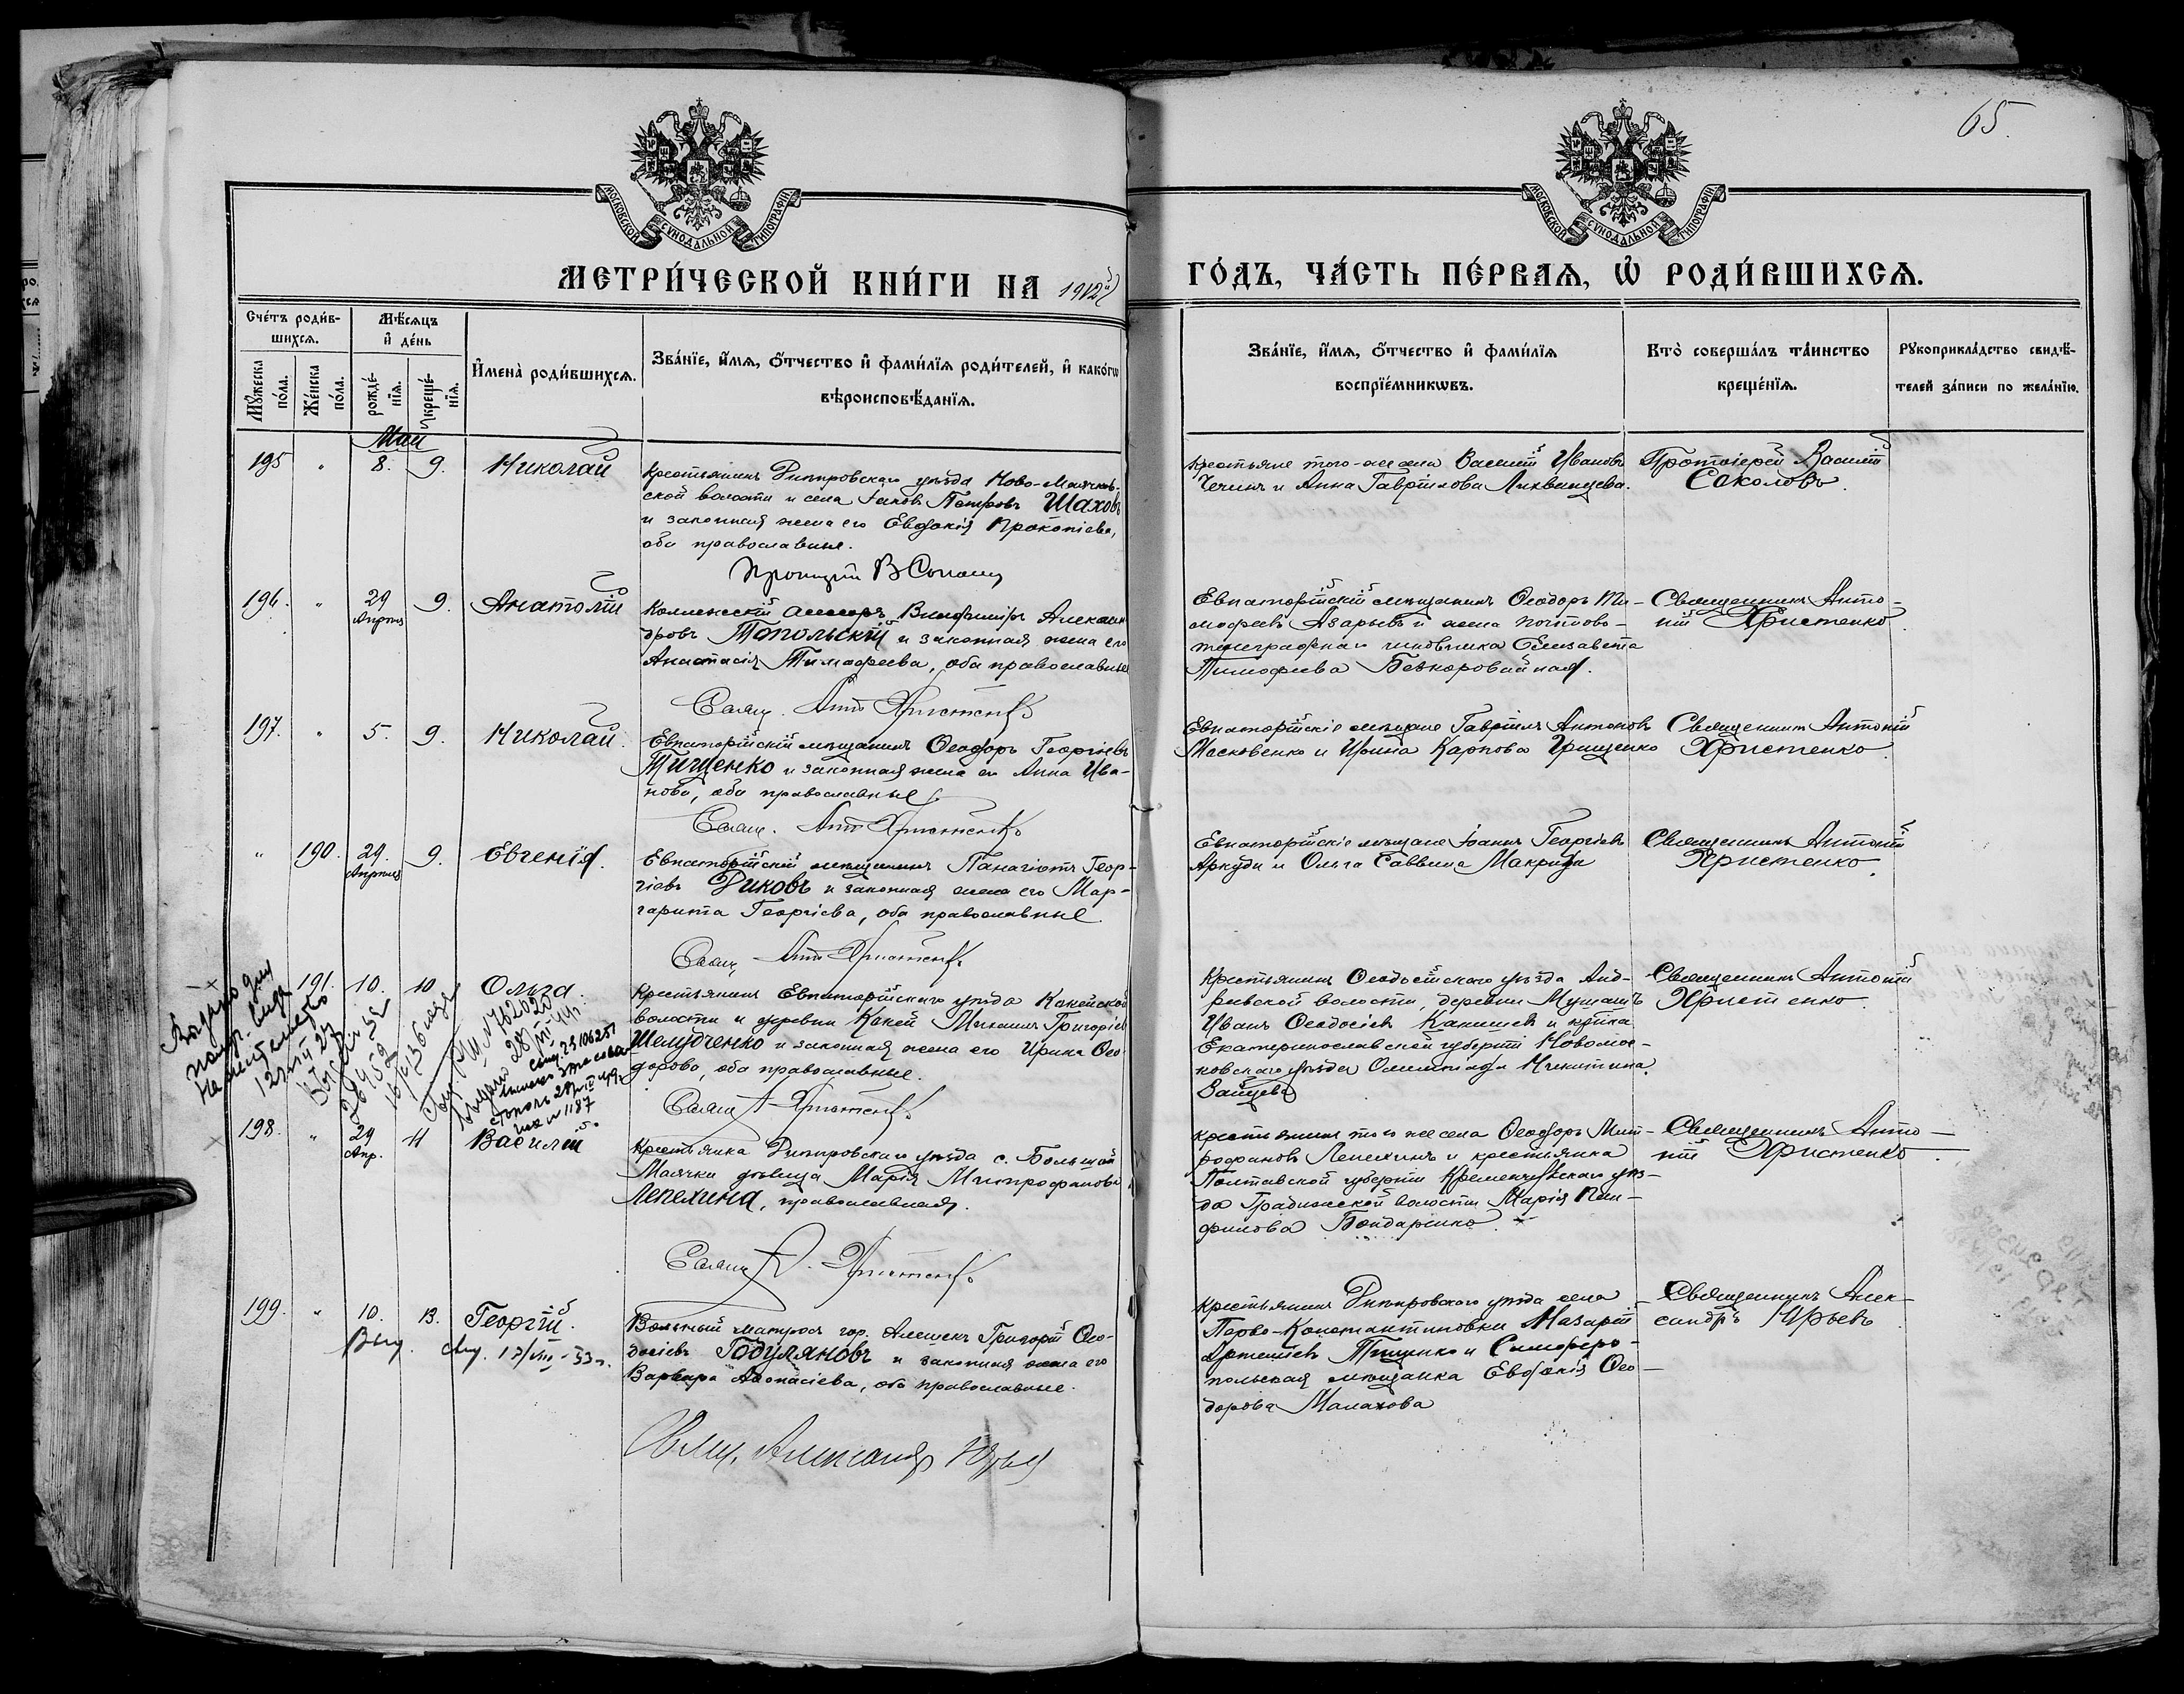 65.
МОСКОВСКОЙ СѴНОДАЛЬНОЙ ТИПОГРАФІИ
МОСКОВСКОЙ СѴНОДАЛЬНОЙ ТИПОГРАФІИ
МЕТРИ́ЧЕСКОЙ КНИ́ГИ НА 1912й
ГО́ДЪ, ЧА́СТЬ ПЕ́РВАЯ, Ѡ҆ РОДИ́ВШИХСЯ.
Сче́тъ роди́в-
шихся.
Мѣ́сяцъ
и҆ де́нь
Мꙋ́жеска по́ла.
Же́нска по́ла.
рожде́-
нїя.
креще́-
нїя.
И҆мена̀ роди́вшихся.
Зва́нїе, и҆́мя, ѻ҆́тчество и҆ фами́лїя роди́телей, и҆ како́гѡ
вѣроисповѣ́данїя.
Зва́нїе, и҆́мя, ѻ҆́тчество и҆ фами́лїя
воспрїе́мникѡвъ.
Кто̀ соверша́лъ та́инство
креще́нїя.
Рꙋкоприкла́дство свидѣ́-
телей за́писи по жела́нїю.
Май
195 " 8. 9. Николай
Крестьянинъ Днѣпровскаго уѣзда Ново-Маячков-
ской волости и села Іаковъ Петровъ Шаховъ
и законная жена его Евдокія Прокопіева,
оба православные.
Крестьяне того-же села Василій Ивановъ
Чечинъ и Анна Гаврілова Литвинцева.
Протоіерей Василій
Соколовъ.
196. " 29 Апрѣля 9. Анатолій
Коллежскій асессоръ Владиміръ Алексан-
дровъ Топольскій и законная жена его
Анастасія Тимофеева, оба православные
Евпаторійскій мѣщанинъ Ѳеодоръ Ти-
мофеевъ Азарьевъ и жена почтово-
телеграфнаго чиновника Елизавета
Тимофеева Безкоровайная.
Священникъ Анто-
ній Христенко.
Свящ. Ант. Христенко
197. " 5. 9. Николай.
Евпаторійскій мѣщанинъ Ѳеодоръ Георгіевъ
Тищенко и законная жена его Анна Ива-
нова, оба православные
Евпаторійскіе мѣщане Гавріилъ Антоновъ
Масковенко и Ирина Карпова Грищенко
Священникъ Антоній
Христенко.
Свящ. Ант. Христенко
" 190. 29. Апрѣля 9. Евгенія.
Евпаторійскій мѣщанинъ Панаіотъ Геор-
гіевъ Диковъ и законная жена его Мар-
гарита Георгіева, оба православные.
Евпаторійскіе мѣщане Іоаннъ Георгіевъ
Аркуди и Ольга Саввина Макриди
Священникъ Антоній
Христенко.
Свящ. Ант. Христенко
191. 10. 10 Ольга.
Крестьянинъ Евпаторійскаго уѣзда Конѣйской
волости и деревни Григорьев
Шелудченко и законная жена его Ирина Ѳео-
дорова, оба православные.
Крестьянинъ Ѳеодосійскаго уѣзда Анд-
реевской волости, деревни
Иванъ Ѳеодосіевъ и кр-ка
Екатеринославской губерніи Новомос-
ковскаго уѣзда Олимпіада Никитина
Зайцева
Священникъ Антоній
Христенко.
Свящ. А. Христенко
198. " 29 Апр. 11 Василій.
Крестьянка Днѣпровскаго уѣзда с. Большой
Маячки дѣвица Марія Митрофанова
Лепехина, православная.
Крестьянинъ того же села Ѳеодоръ Мит-
рофановъ Лепехинъ и крестьянка
Полтавской губерніи Кременчугскаго уѣз-
да Градижской волости Марія Пан-
филова Бондаренко.
Священникъ Анто-
ній Христенко.
Свящ. А. Христенко
199. " 10. 13. Георгій.
Выд. свид. 17/VIII-53 г.
Вольный матросъ гор. Алешекъ Григорій Ѳео-
досіевъ Годуляновъ и законная жена его
Варвара Аѳанасіева, оба православные.
Крестьянинъ Днѣпровскаго уѣзда села
Перво-Константиновки Назарій
Артеміевъ Тищенко и Симферо-
польская мѣщанка Евдокія Ѳео-
дорова Малахова
Священникъ Алек-
сандръ Юрьевъ.
Свящ. Александръ Юрьев